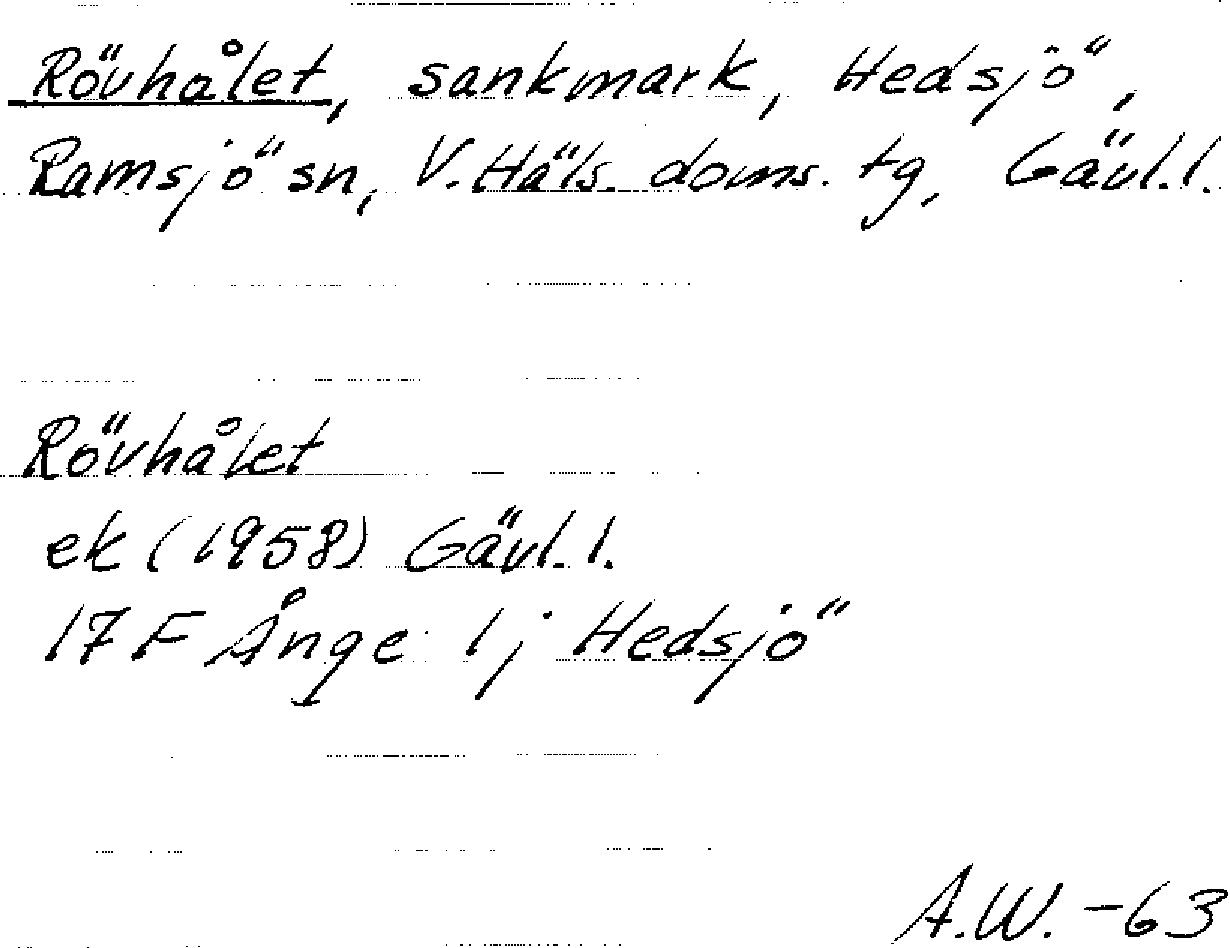 Rövhålet, sankmark, Hedsjö,
Ramsjö sn, V. Häls. doms. tg, Gävl. l.
Rövhålet
ek (1958) Gävl. l.
17 F Ånge 1 j Hedsjö
A.W. -63